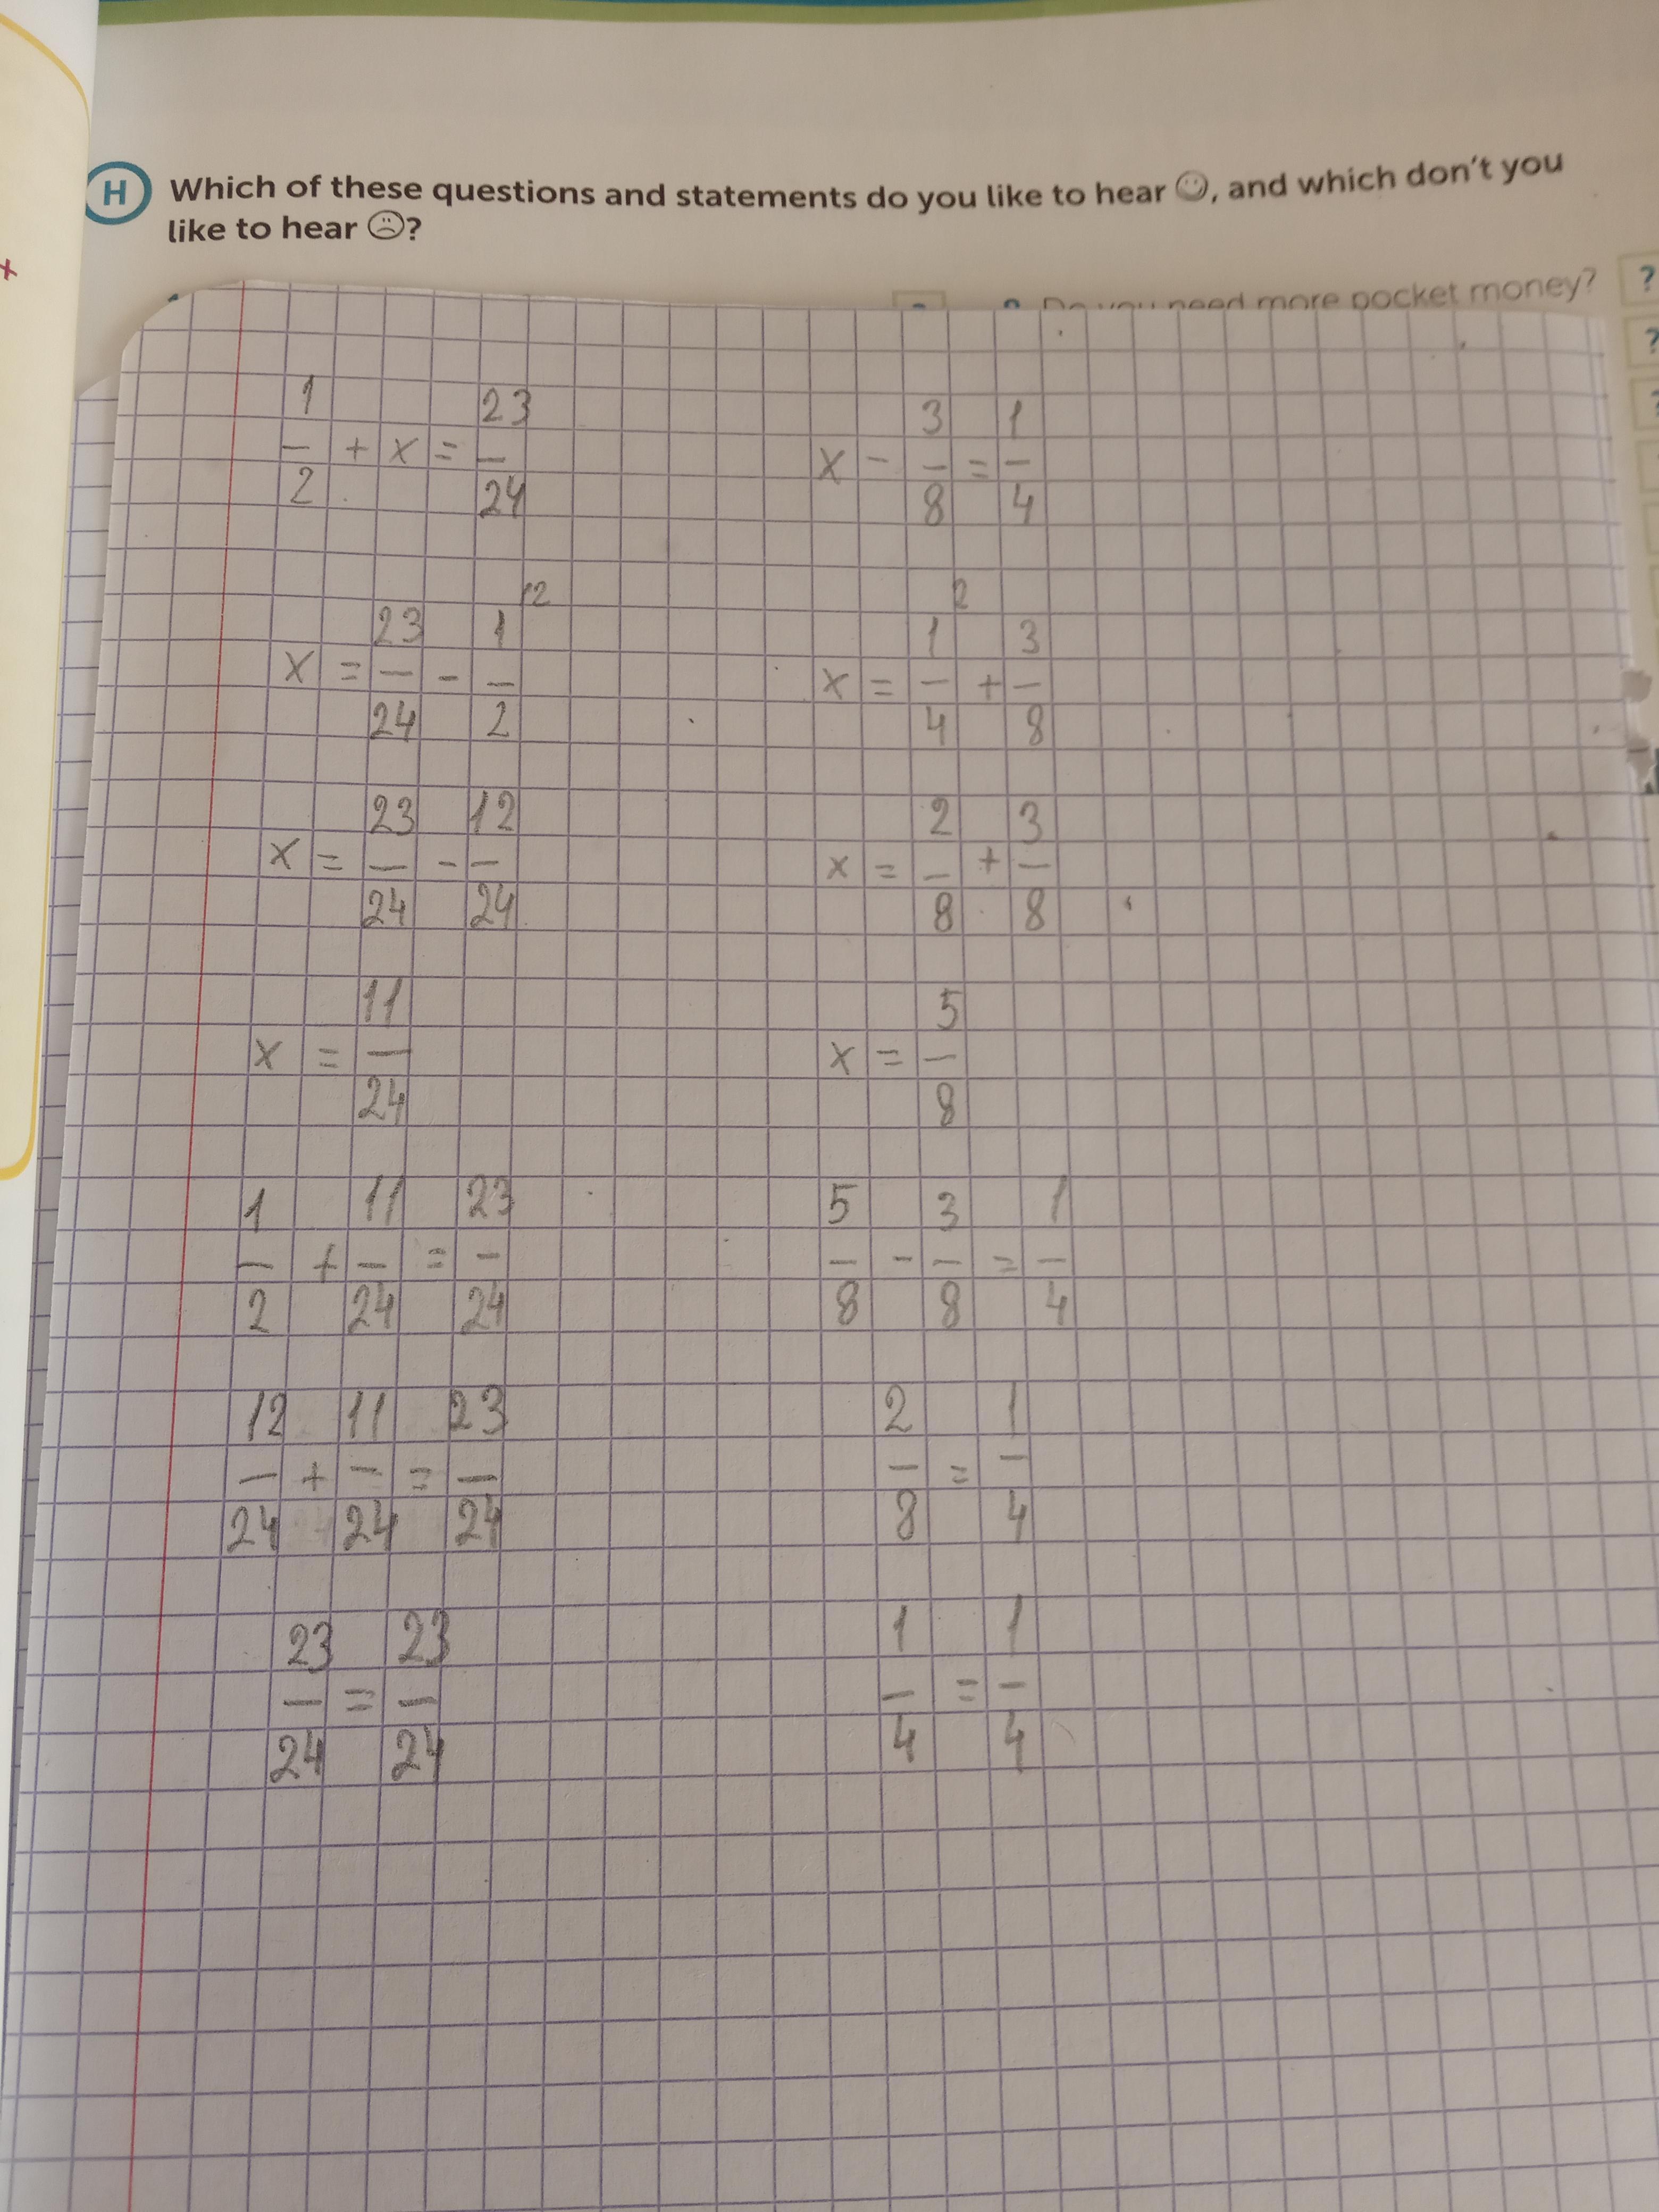 H Which of these questions and statements do you like to hear ☺, and which don't you
like to hear ☹?
need more pocket money? ?
1/2 + x = 23/24
x = 23/24 - 1/2 12
x = 23/24 - 12/24
x = 11/24
1/2 + 11/24 = 23/24
12/24 + 11/24 = 23/24
23/24 = 23/24
x - 3/8 = 1/4
x = 1/4 2 + 3/8
x = 2/8 + 3/8
x = 5/8
5/8 - 3/8 = 1/4
2/8 = 1/4
1/4 = 1/4